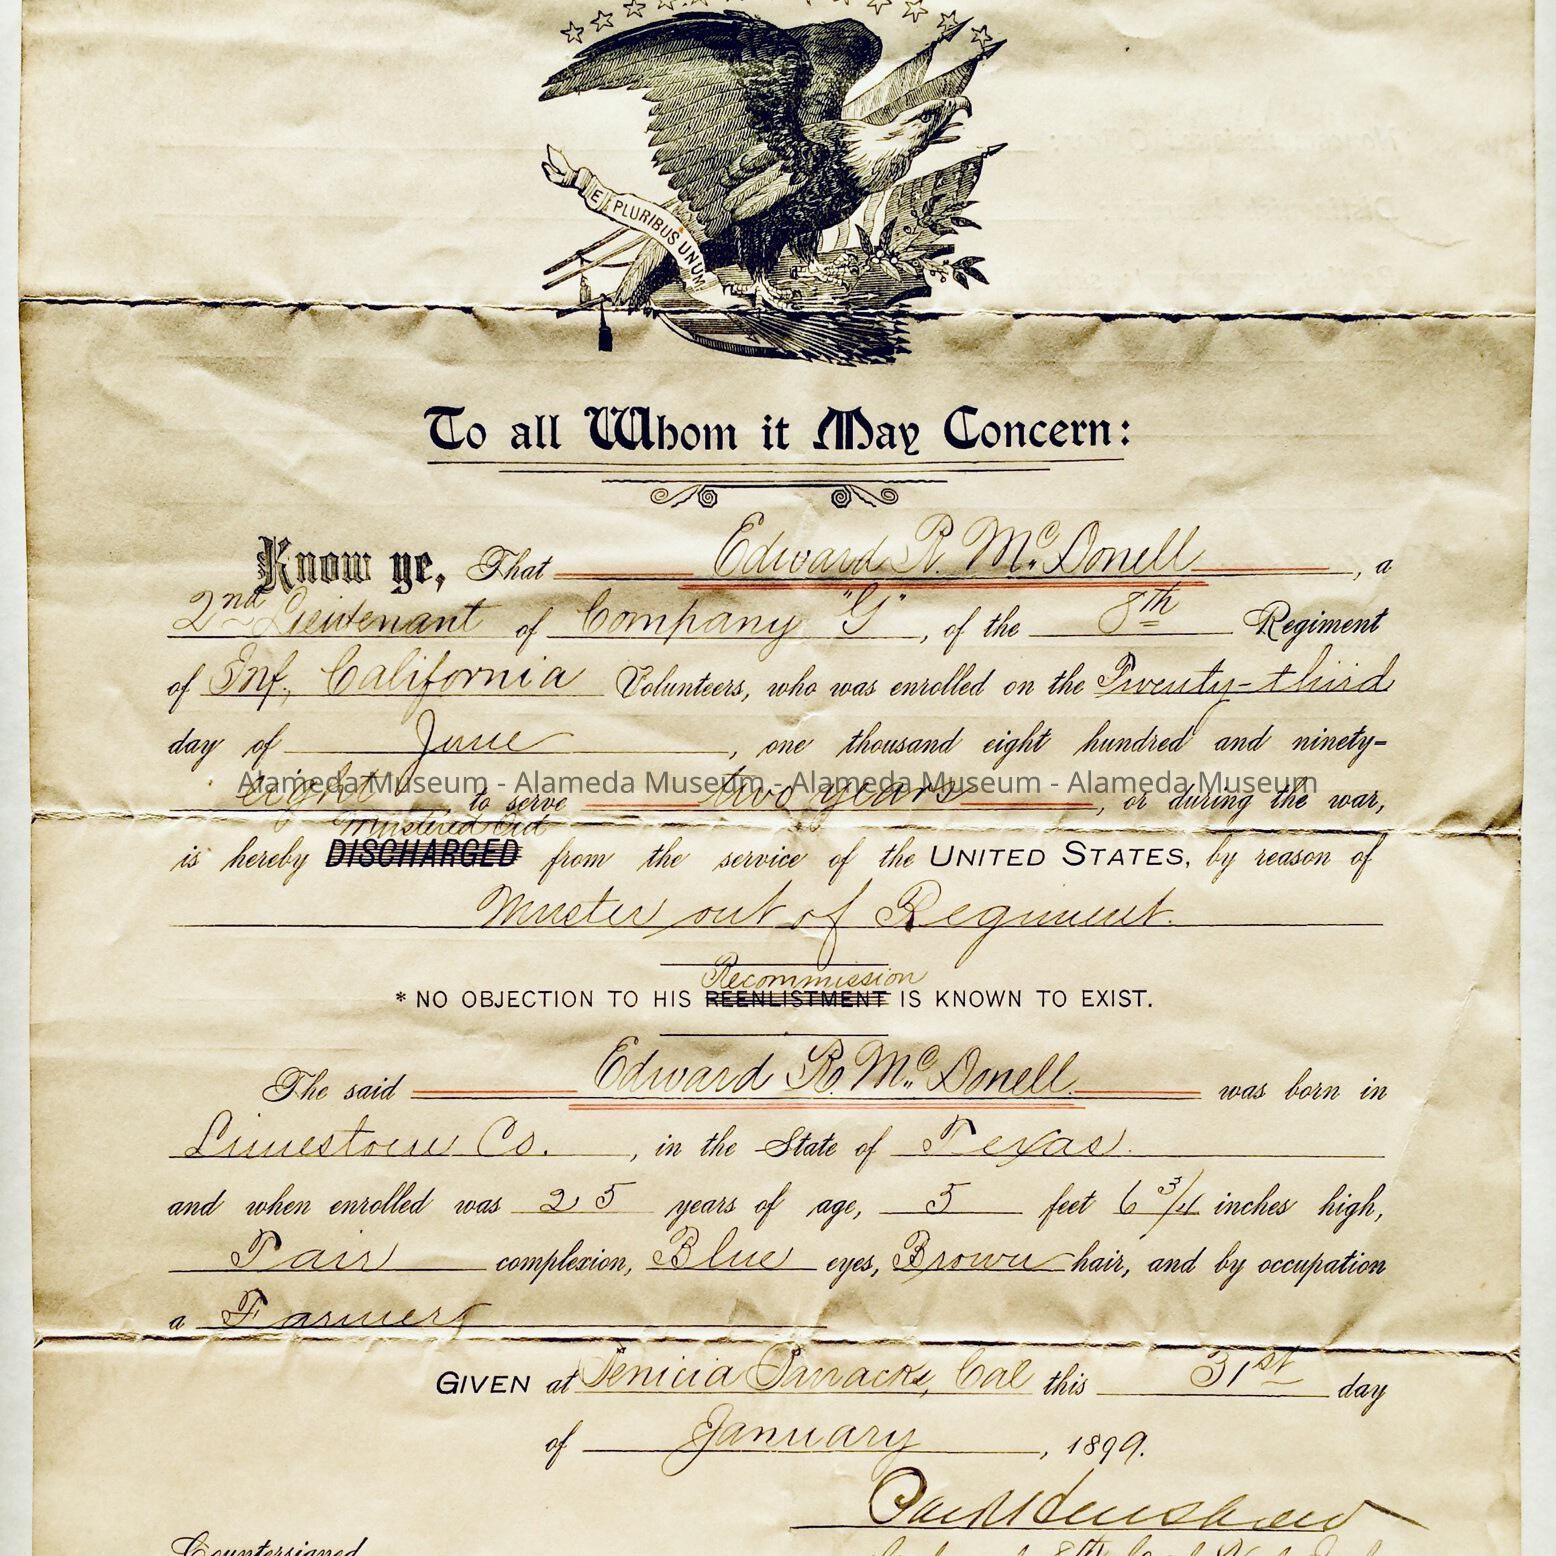 E PLURIBUS UNUM
To all Whom it May Concern:
Know ye, That Edward R. McDonell, a
2nd Lieutenant of Company "G", of the 8th Regiment
of Inf, California Volunteers, who was enrolled on the Twenty-third
day of June, one thousand eight hundred and ninety-
Alameda Museum - Alameda Museum - Alameda Museum - Alameda Museum
eight, to serve two years, or during the war,
Mustered Out
is hereby DISCHARGED from the service of the UNITED STATES, by reason of
Muster out of Regiment.
Recommission
*NO OBJECTION TO HIS REENLISTMENT IS KNOWN TO EXIST.
The said Edward R. McDonell was born in
Limestone Co., in the State of Texas
and when enrolled was 25 years of age, 5 feet 6 3/4 inches high,
Fair complexion, Blue eyes, Brown hair, and by occupation
a Farmer
GIVEN at Benicia Barracks, Cal this 31st day
of January, 1899.
Henshaw
Countersigned
8th